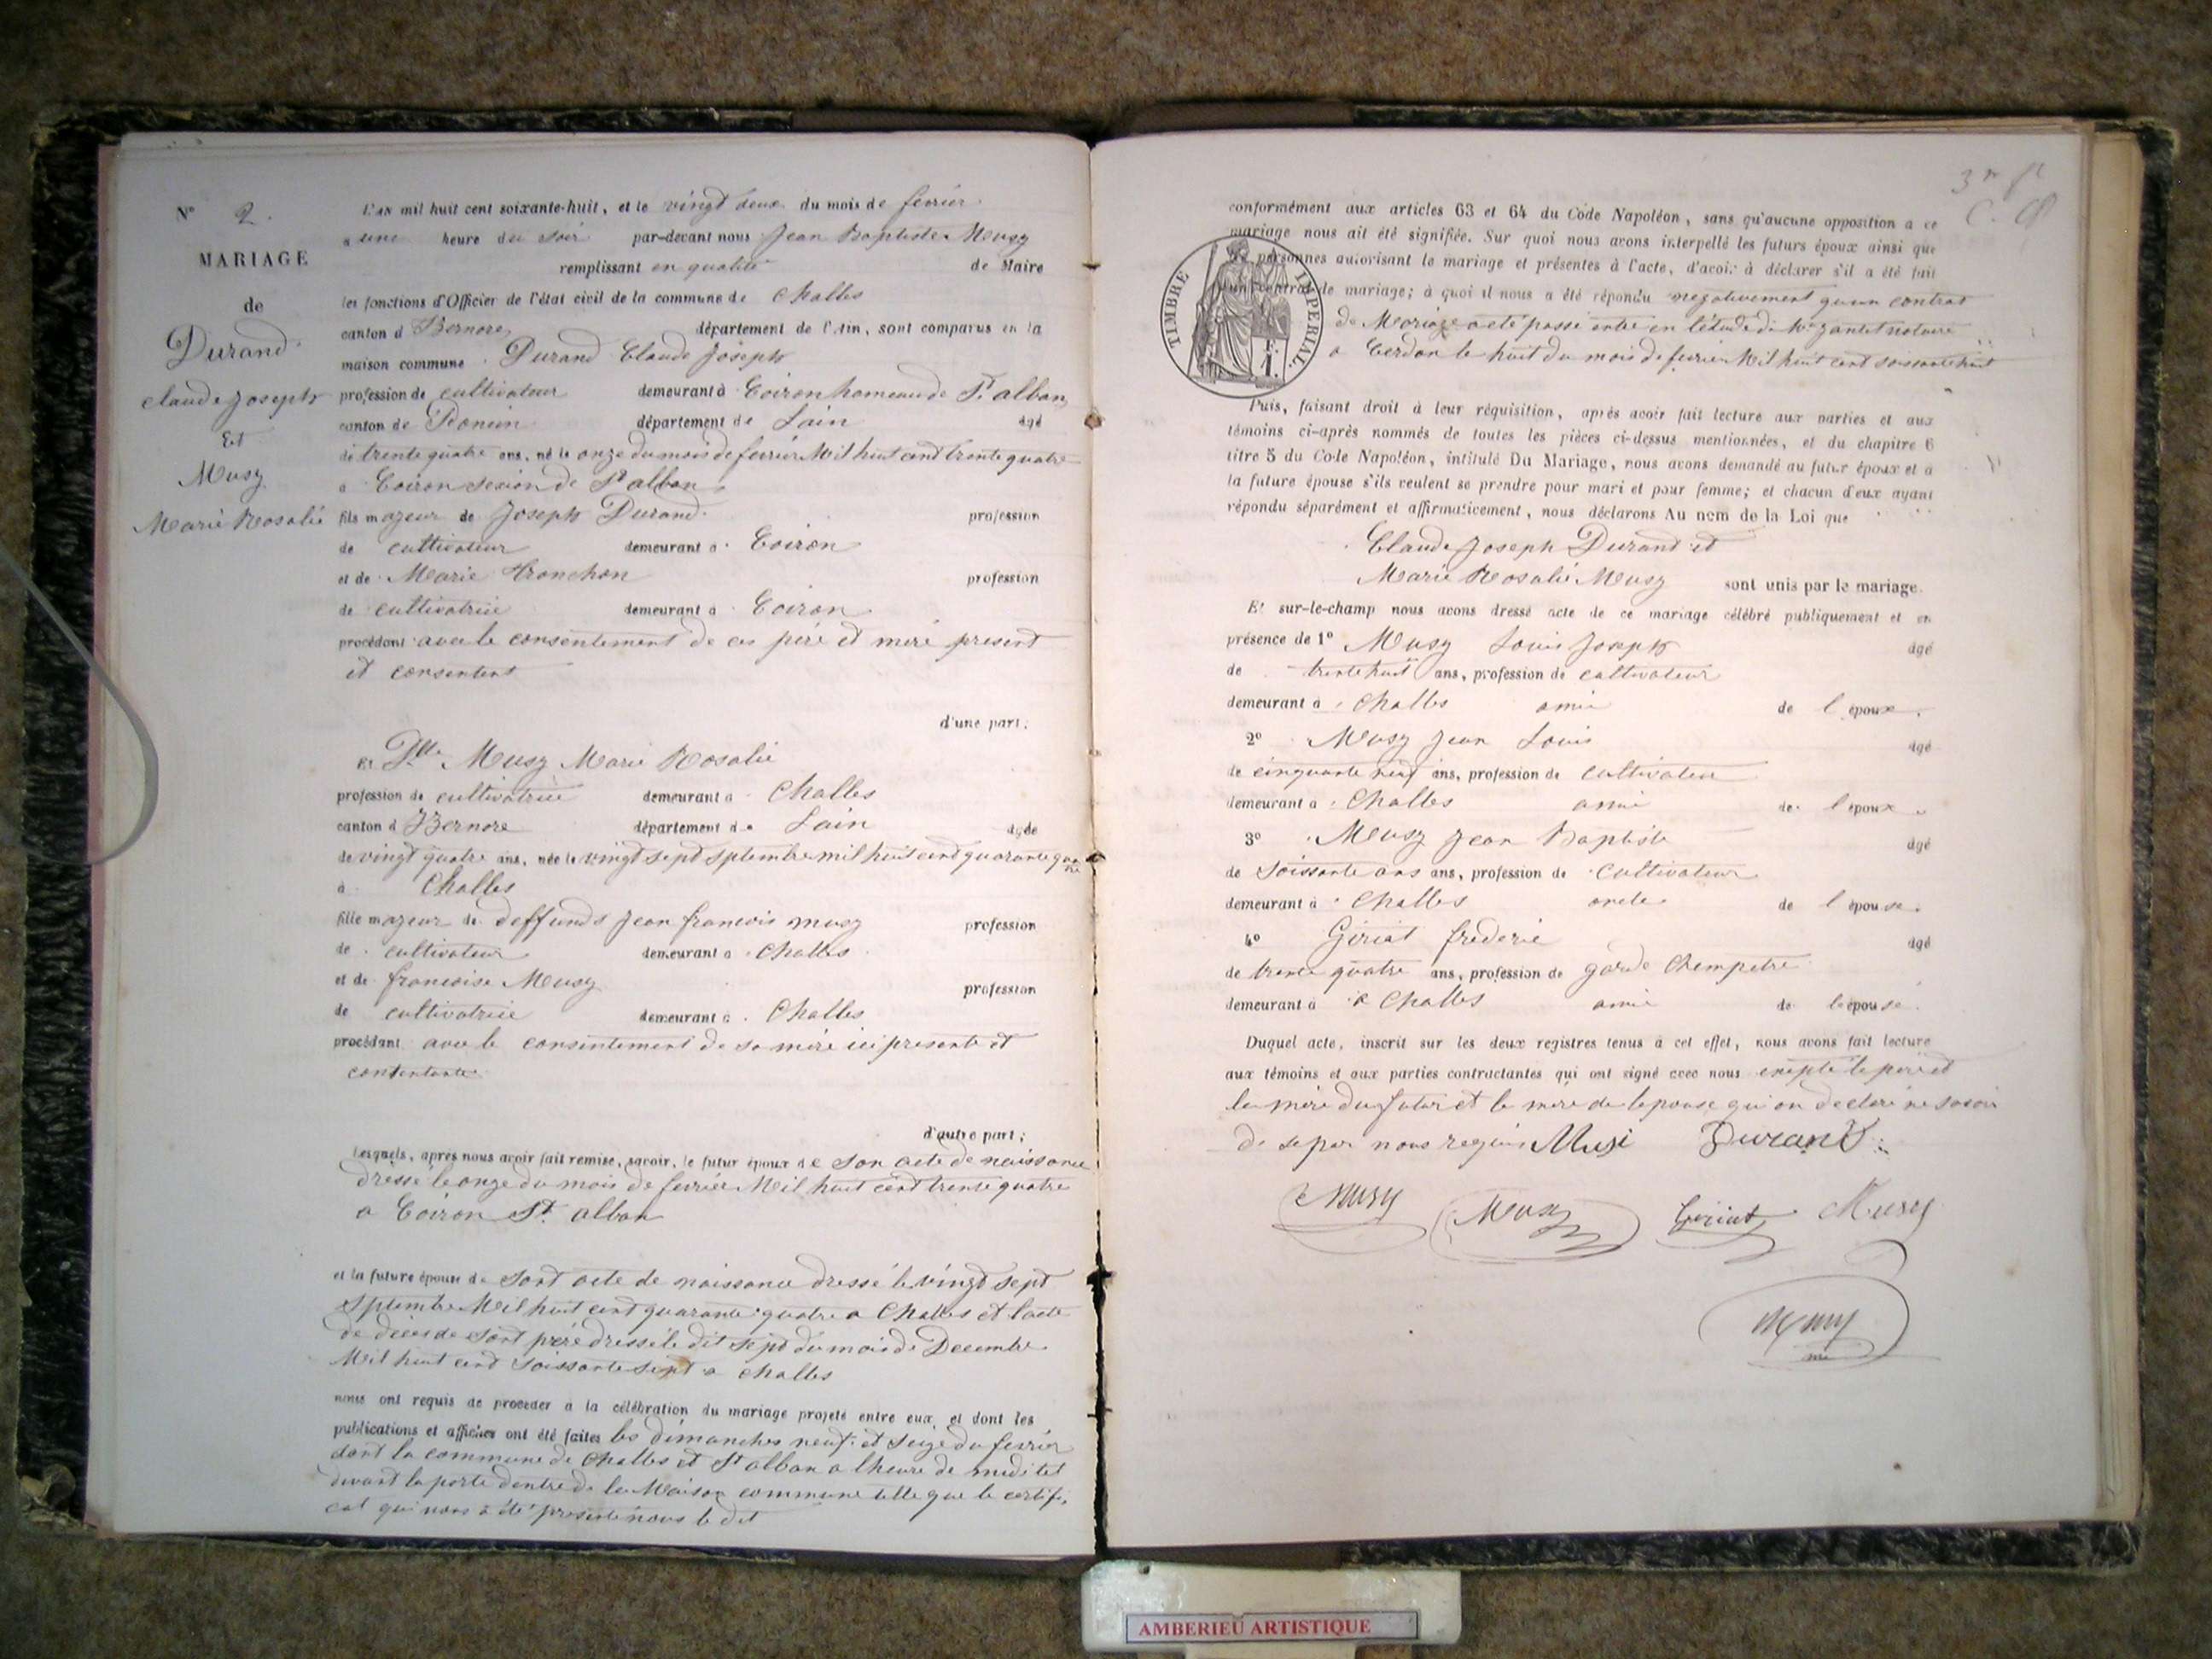 N° 2.
MARIAGE
de
Durand
claude joseph
Et
Musy
Marie Rosalie
L'AN mil huit cent soixante-huit, et le vingt deux du mois de fevrier
a une heure du soir par-devant nous Jean Baptiste Musy
remplissant en qualité de Maire
les fonctions d'Officier de l'état civil de la commune de Challes
canton d département de l'Ain, sont comparus en la
maison commune Durand Claude Joseph
profession de cultivateur demeurant à Coiron hameau de St alban
canton de Poncin département de Lain agé
de trente quatre ans, né le onze du mois de fevrier Mil huit cent trente quatre
a Coiron sexion de St alban
fils majeur de Joseph Durand profession
de cultivateur demeurant a Coiron
et de Marie Tronchon profession
de cultivatrice demeurant à Coiron
procédant avec le consentement de ces père et mere present
et consentent
d'une part;
Et Dlle Musy Marie Rosalie
profession de cultivatrice demeurant a Challes
canton d département de Lain
de vingt quatre ans, née le vingt sept septembre mil huit cent quarante quatre
à Challes
fille majeur de deffunds Jean francois musy profession
de cultivateur demeurant a Challes
et de francoise Musy profession
de cultivatrice demeurant à Challes
procédant avec le consentement de sa mère ici presente et
d'autre part;
Lesquels, après nous avoir fait remise, savoir, le futur époux de son acte de naissance
dressé le onze du mois de fevrier Mil huit cent trente quatre
a Coiron St. alban
et la future épouse de sont acte de naissance dressé le vingt sept
septembre Mil huit cent quarante quatre a Challes et lacte
de décès de sont père dressé le dit sept du mois de Decembre
Mil huit cent soissante sept a challes
nous ont requis de procéder à la célébration du mariage projeté entre eux, et dont les
publications et affiches ont été faites les dimanches neuf et seize du fevrier
dant la commune de Challes et St alban a lheure de midi
devant la porte dentre de la Maison commune telle que le certifi,
cat qui nous à été presente nous le dit
3
conformément aux articles 63 et 64 du Code Napoléon, sans qu'aucune opposition a ce
mariage nous ait été signifiée. Sur quoi nous avons interpellé les futurs époux ainsi que
personnes autorisant le mariage et présentes à l'acte, d'avoir à déclarer s'il a été fait
un contrat de mariage; à quoi il nous a été répondu negativement quun contrat
de Mariage a eté passé entre en l'étude de notaire
a Cerdon le huit du mois de fevrier Mil huit cent soissante huit
TIMBRE IMPERIAL.
F.
1.
Puis, faisant droit à leur réquisition, après avoir fait lecture aux parties et aux
témoins ci-après nommés de toutes les pièces ci-dessus mentionnées, et du chapitre 6
titre 5 du Code Napoléon, intitulé Du Mariage, nous avons demandé au futur époux et à
la future épouse s'ils veulent se prendre pour mari et pour femme; et chacun d'eux ayant
répondu séparément et affirmativement, nous déclarons Au nom de la Loi que
Claude Joseph Durand et
Marie Rosalie Musy sont unis par le mariage.
Et sur-le-champ nous avons dressé acte de ce mariage célébré publiquement et en
présence de 1° Musy Louis Joseph agé
de trente huit ans, profession de cultivateur
demeurant à Challes amie de l époux.
2° Musy Jean Louis agé
de cinquante neuf ans, profession de cultivateur
demeurant a Challes amie de l époux
3° Musy Jean Baptiste agé
de soissante ans ans, profession de cultivateur
demeurant à Challes oncle de l épouse.
4° Giriat frederic agé
de trente quatre ans, profession de garde Chempetre
demeurant à a Challes amie de lepouse.
Duquel acte, inscrit sur les deux registres tenus à cet effet, nous avons fait lecture
aux témoins et aux parties contractantes qui ont signé avec nous le père et
la mère du futur et la mere de lepouse qui on declaré ne savoir
de se par nous Musi Durand
Musy Musy Giriat Musy
Musy
AMBERIEU ARTISTIQUE